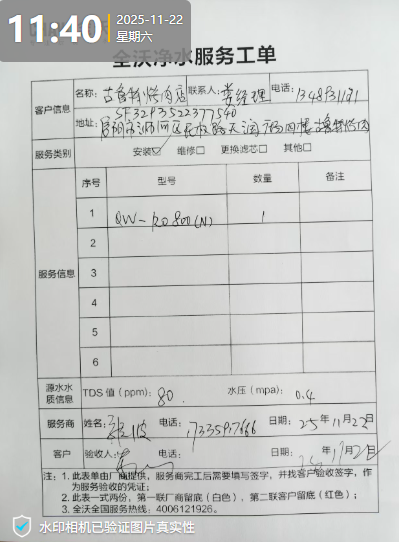 11:40
2025-11-22
星期六
全沃净水服务工单
客户信息
名称：
烤肉店
联系人：
娄经理
电话：
SF3293522377540
地址：
服务类别
安装☑ 维修□ 更换滤芯□ 其他□
服务信息
序号 型号 数量 备注
1 QW-RO800(N) 1
2
3
4
5
6
源水水质信息
TDS 值 (ppm): 80 水压 (mpa): 0.4
服务商
姓名: 电话: 日期: 25年11月22日
客户
验收人: 电话: 日期: 年11月22日
注：1. 此表单由厂商提供，服务商完工后需要填写签字，并找客户验收签字，作
为服务验收的凭证；
2. 此表一式两份，第一联厂商留底（白色），第二联客户留底（红色）；
3. 全沃全国服务热线：4006121926。
水印相机已验证图片真实性